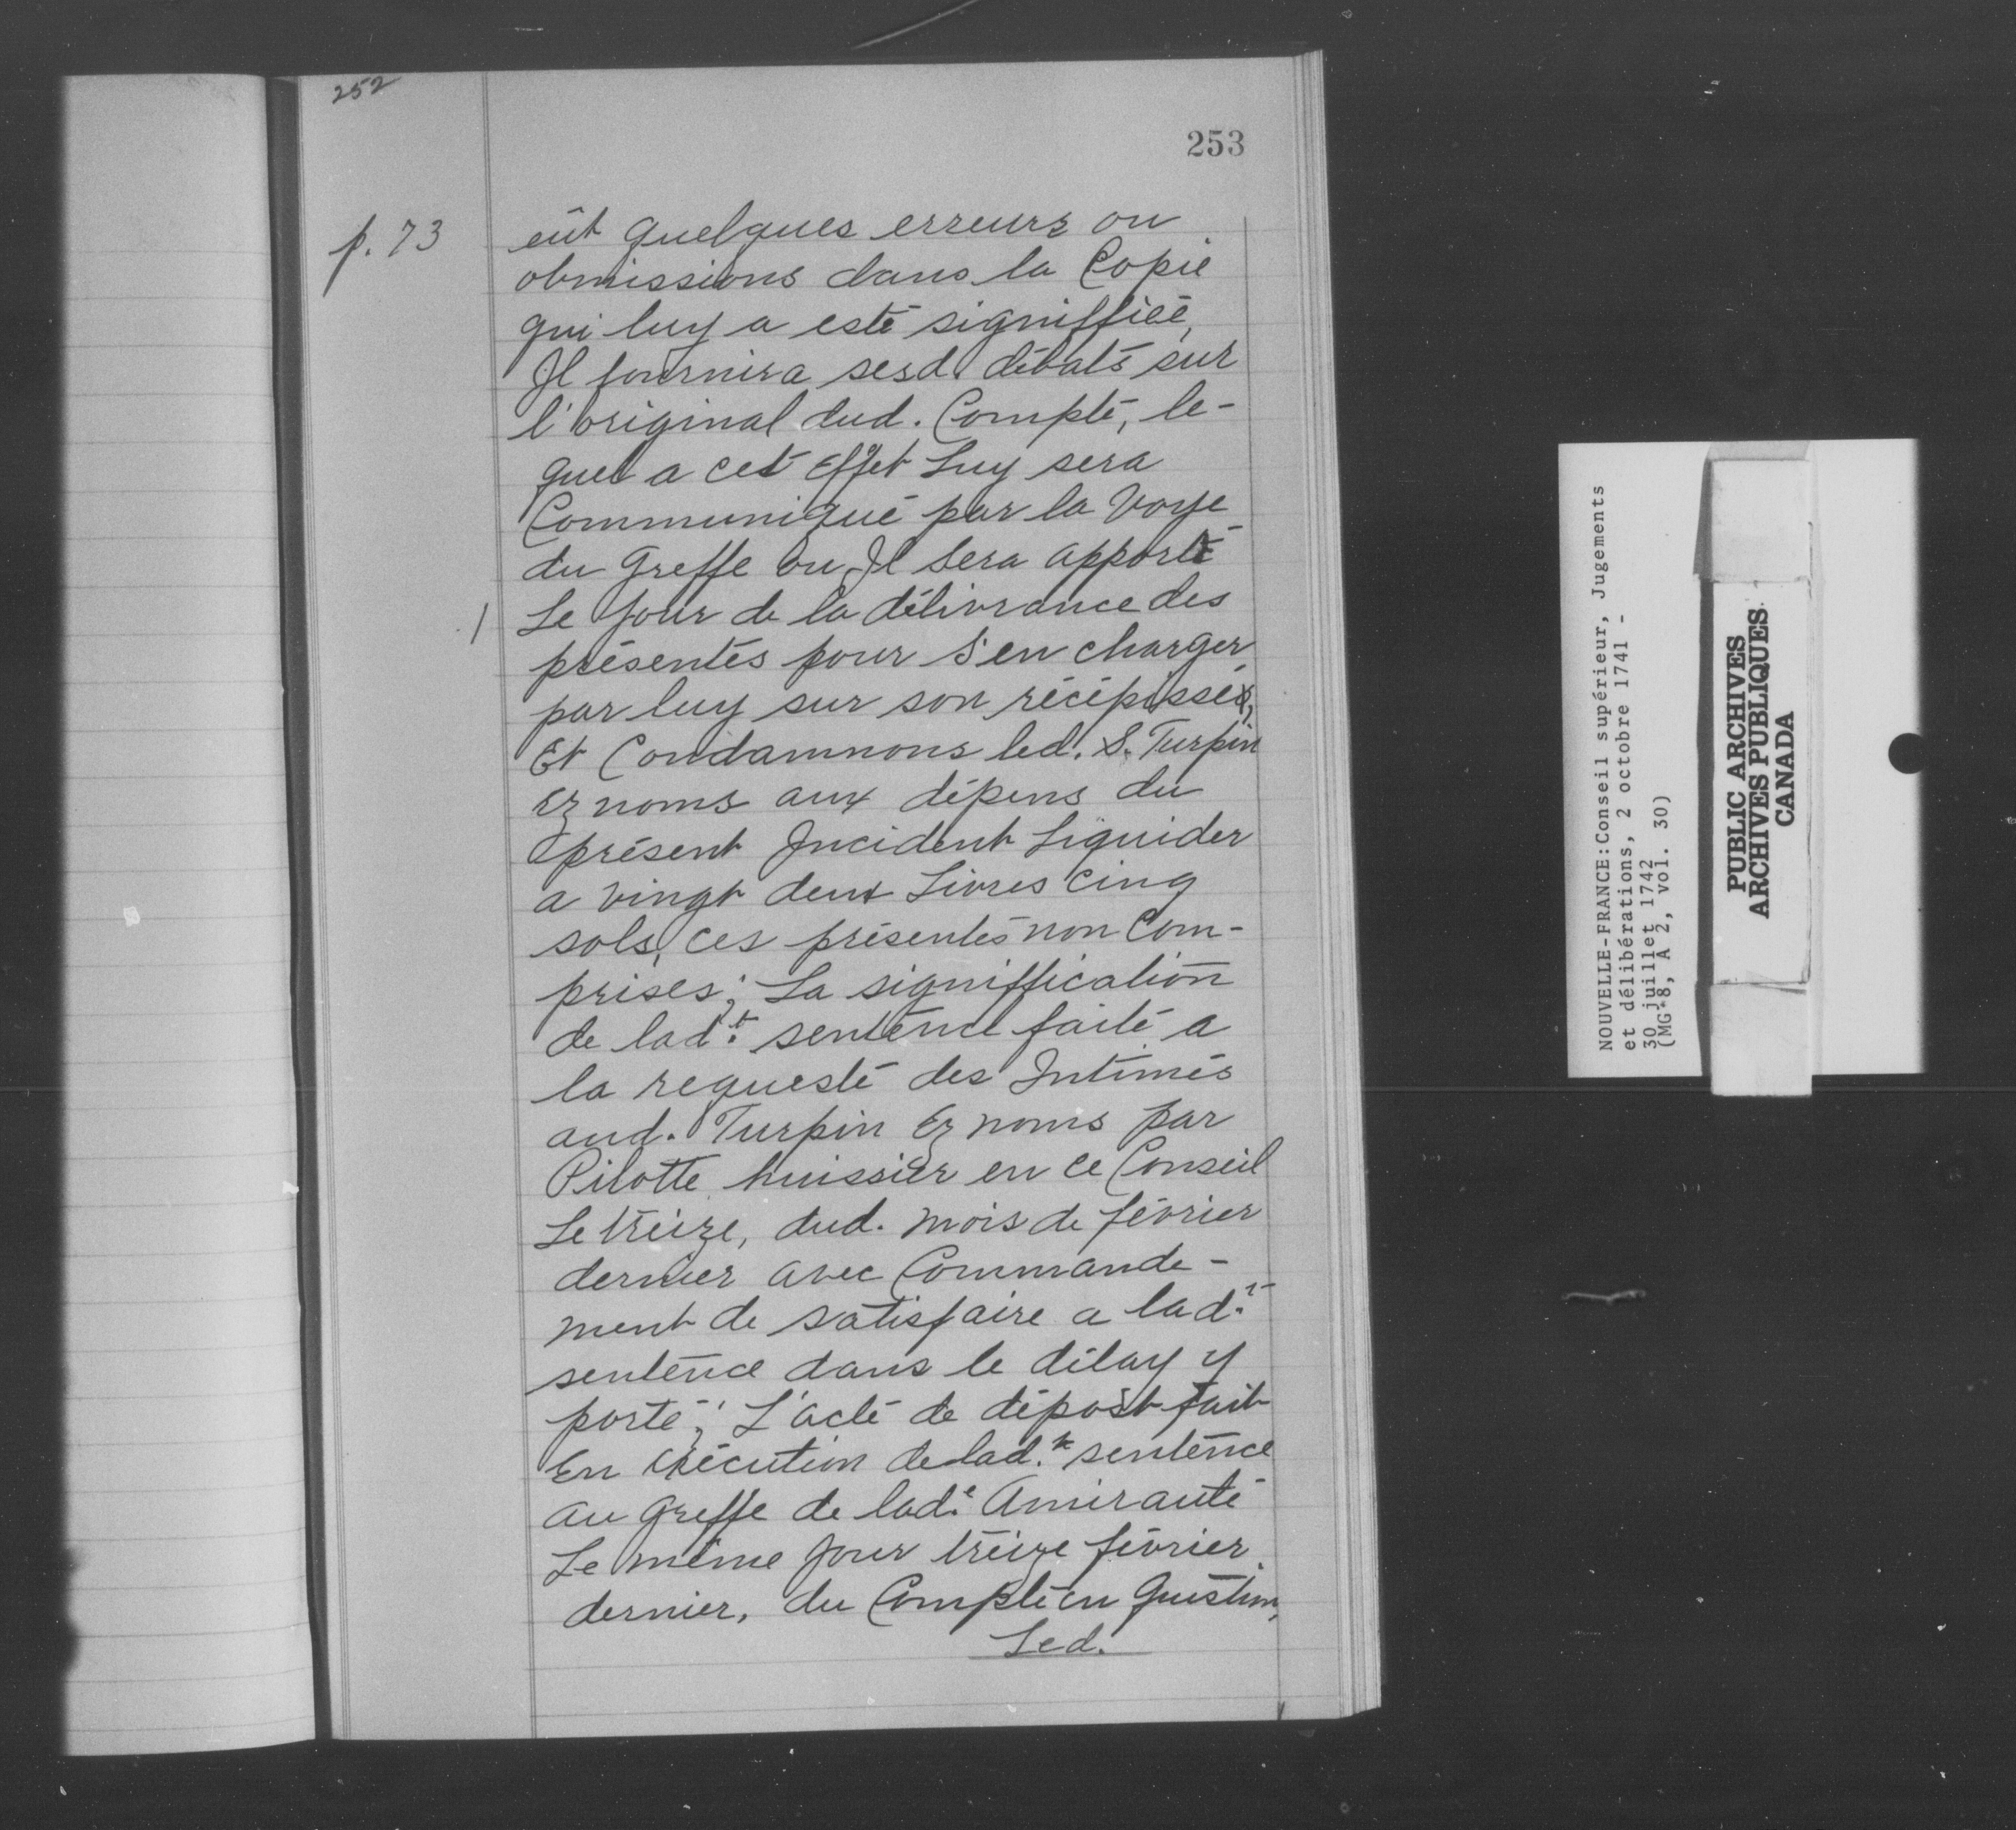 252
253
p. 73
eût quelques erreurs ou
obmissions dans la Copie
qui luy a esté signiffiée,
Il fournira sesd. débats sur
l'original dud. Compte, le-
quel a cet Effet Luy sera
Communiqué par la Voye
du Greffe ou Il sera apporté
Le Jour de la délivrance des
présentes pour s'en charger
par luy sur son récépissé,
Et Condamnons led. S. Turpin
Ez noms aux dépens du
présent Incident Liquider
a vingt deux Livres Cinq
sols, ces présentes non Com-
prises; La signiffication
de lad.t sentence faite a
la requeste des Intimés
aud. Turpin Ez noms par
Pilotte huissier en ce Conseil
Le treize, dud. mois de février
dernier avec Commande-
ment de satisfaire a lad.
sentence dans le délay y
porté; L'acte de dépost fait
En Exécution de lad.te sentence
au greffe de lad.e Amirauté
Le même Jour treize février
dernier, du Compte en Question,
Led.
NOUVELLE-FRANCE:Conseil supérieur, Jugements
et délibérations, 2 octobre 1741 -
30 juillet 1742
(MG 8, A 2, vol. 30)
PUBLIC ARCHIVES
ARCHIVES PUBLIQUES
CANADA